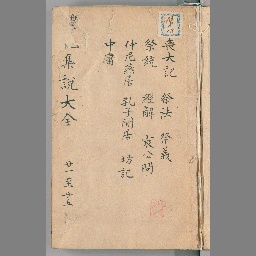 喪大記 祭法 祭義
祭統 經解 哀公問
仲尼燕居 孔子閒居 坊記
中庸
禮記集說大全 廿一至廿五